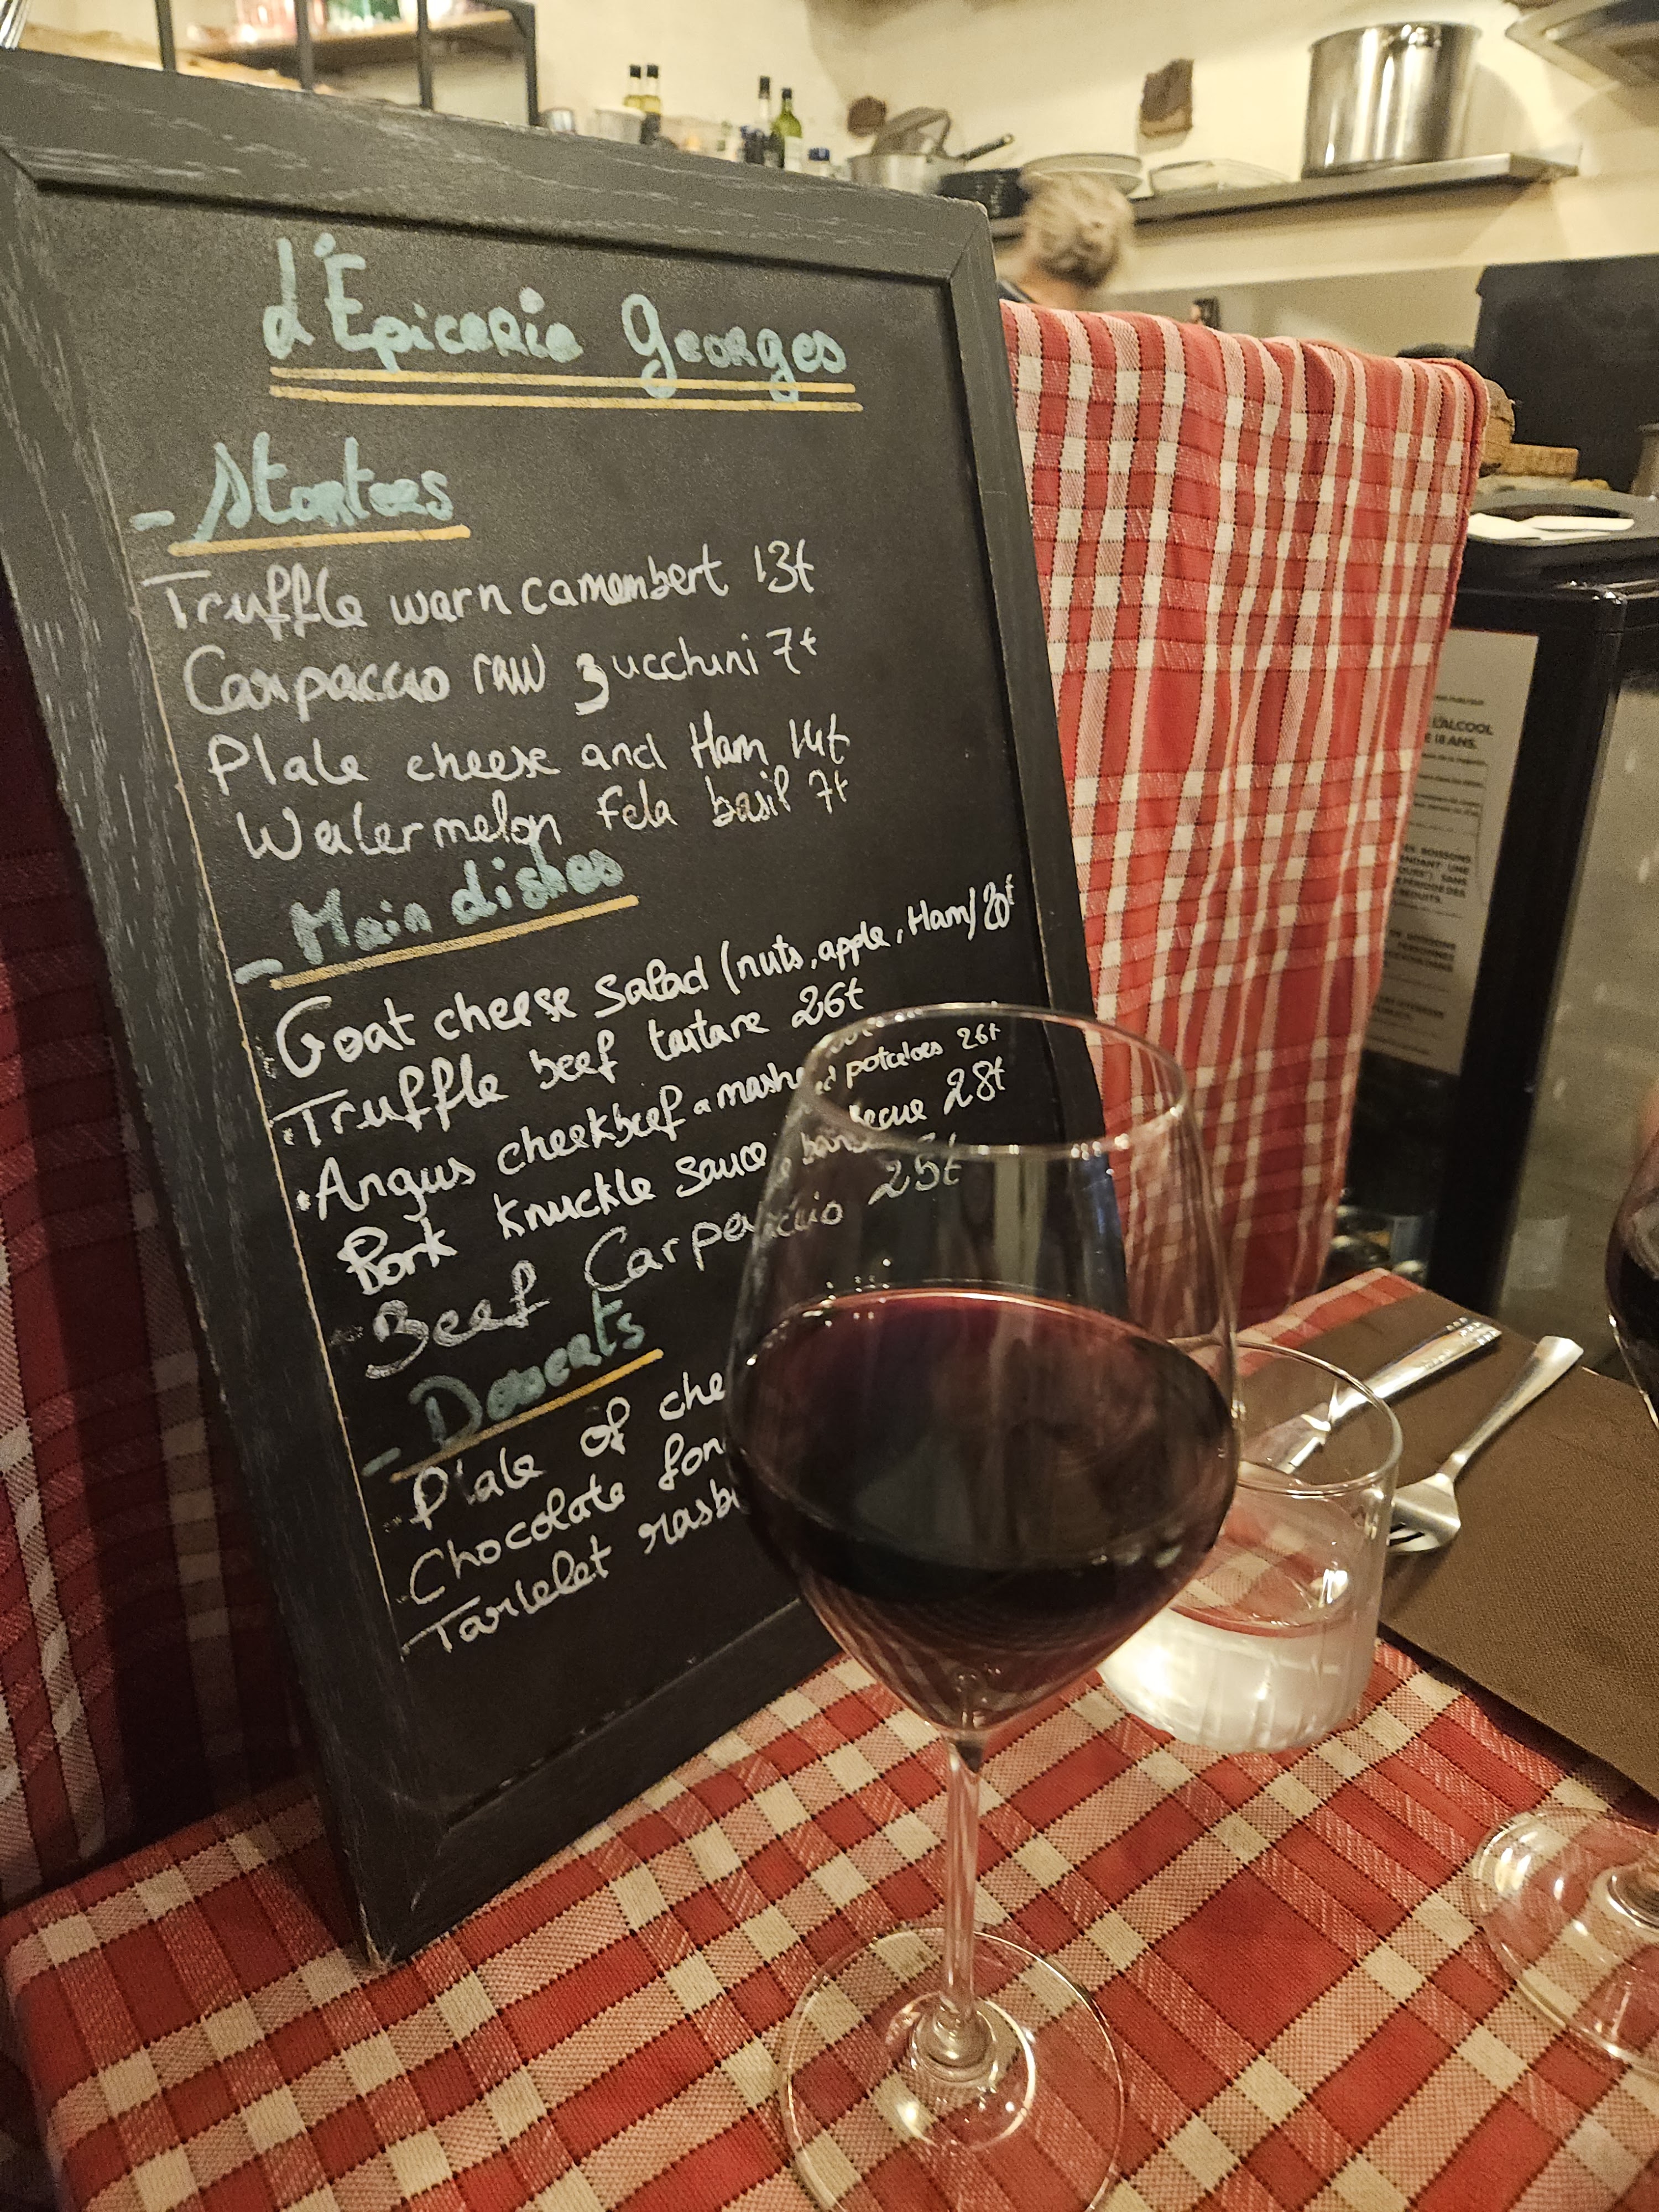 L'Epicerie Georges
- Starters
Truffle warn camembert 13€
Carpaccio raw zucchini 7€
Plate cheese and Ham 14€
Watermelon feta basil 7€
- Main dishes
Goat cheese salad (nuts, apple, Ham) 20€
Truffle beef tartare 26€
Angus cheekbeef a mashed potatoes 26€
Pork knuckle sauce barbecue 28€
Beef Carpaccio 25€
- Desserts
Plate of che
Chocolate fon
Tartelet rasb
L'ALCOOL
E 18 ANS.